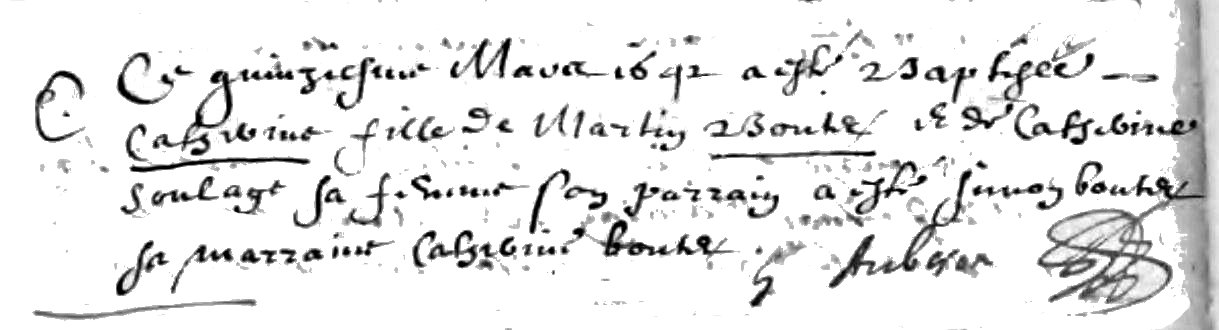 C.
Ce quinziesme Mars 1642 a esté Baptisée
Catherine fille de Martin Boutet et de Catherine
Soulage sa femme son parrain a esté simon boutet
sa marraine Catherine boutet.